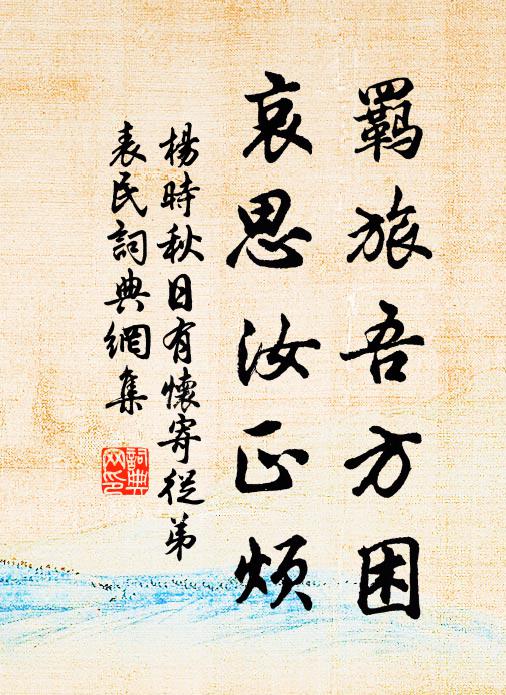 羈旅吾方困
哀思汝正煩
楊時秋日有懷寄從弟
表民詞典網集
詞典
网印